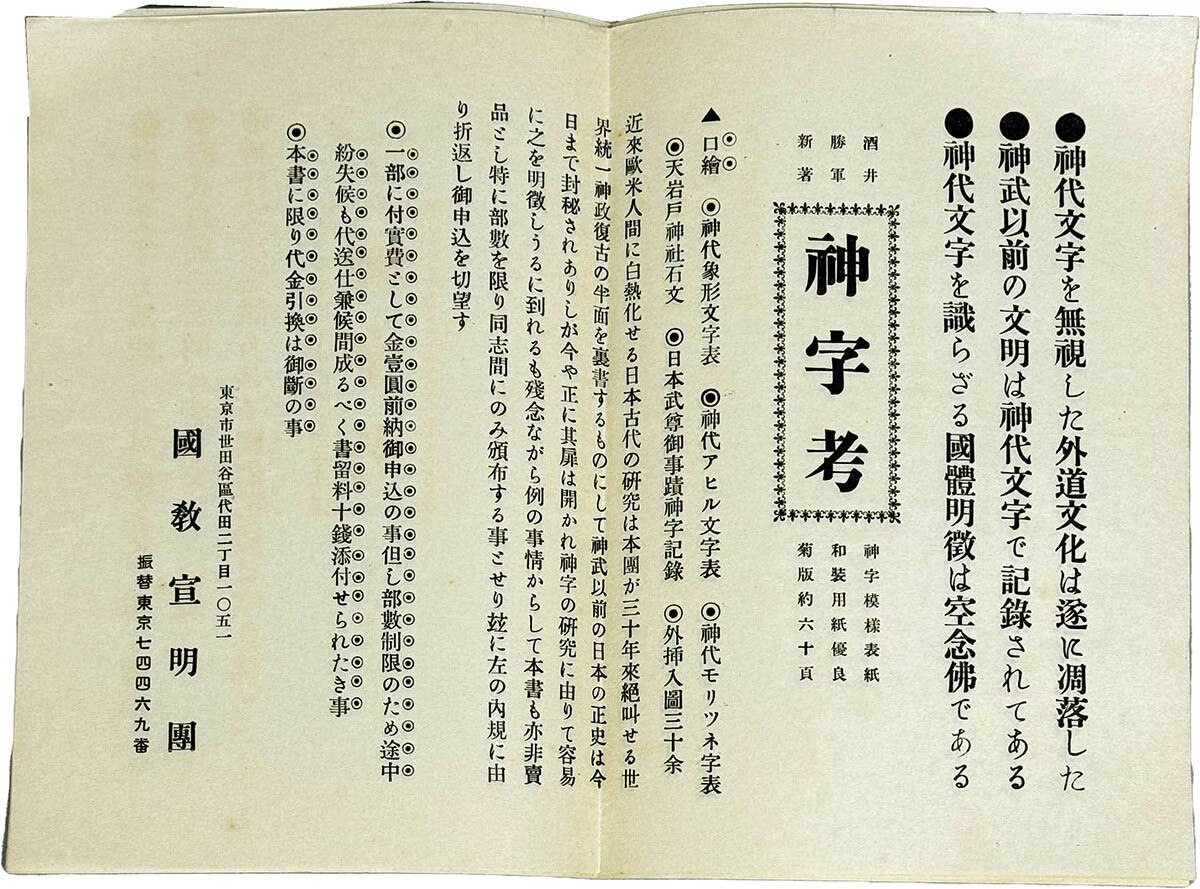 ●神代文字を無視した外道文化は遂に凋落した
●神武以前の文明は神代文字で記錄されてある
●神代文字を識らざる國體明徵は空念佛である
酒井
勝軍
新著
神字考
神字模樣表紙
和裝用紙優良
菊版約六十頁
▲口繪 ◉神代象形文字表 ◉神代アヒル文字表 ◉神代モリツネ字表
◉天岩戸神社石文 ◉日本武尊御事蹟神字記錄 ◉外挿入圖三十余
近來歐米人間に白熱化せる日本古代の硏究は本團が三十年來絕叫せる世
界統一神政復古の半面を裏書するものにして神武以前の日本の正史は今
日まで封祕されありしが今や正に其扉は開かれ神字の硏究に由りて容易
に之を明徵しうるに到れるも殘念ながら例の事情からして本書も亦非賣
品とし特に部數を限り同志間にのみ頒布する事とせり玆に左の內規に由
り折返し御申込を切望す
◉一部に付實費として金壹圓前納御申込の事但し部數制限のため途中
紛失候も代送仕兼候間成るべく書留料十錢添付せられたき事
◉本書に限り代金引換は御斷の事
東京市世田谷區代田二丁目一〇五一
國敎宣明團
振替東京七四四六九番